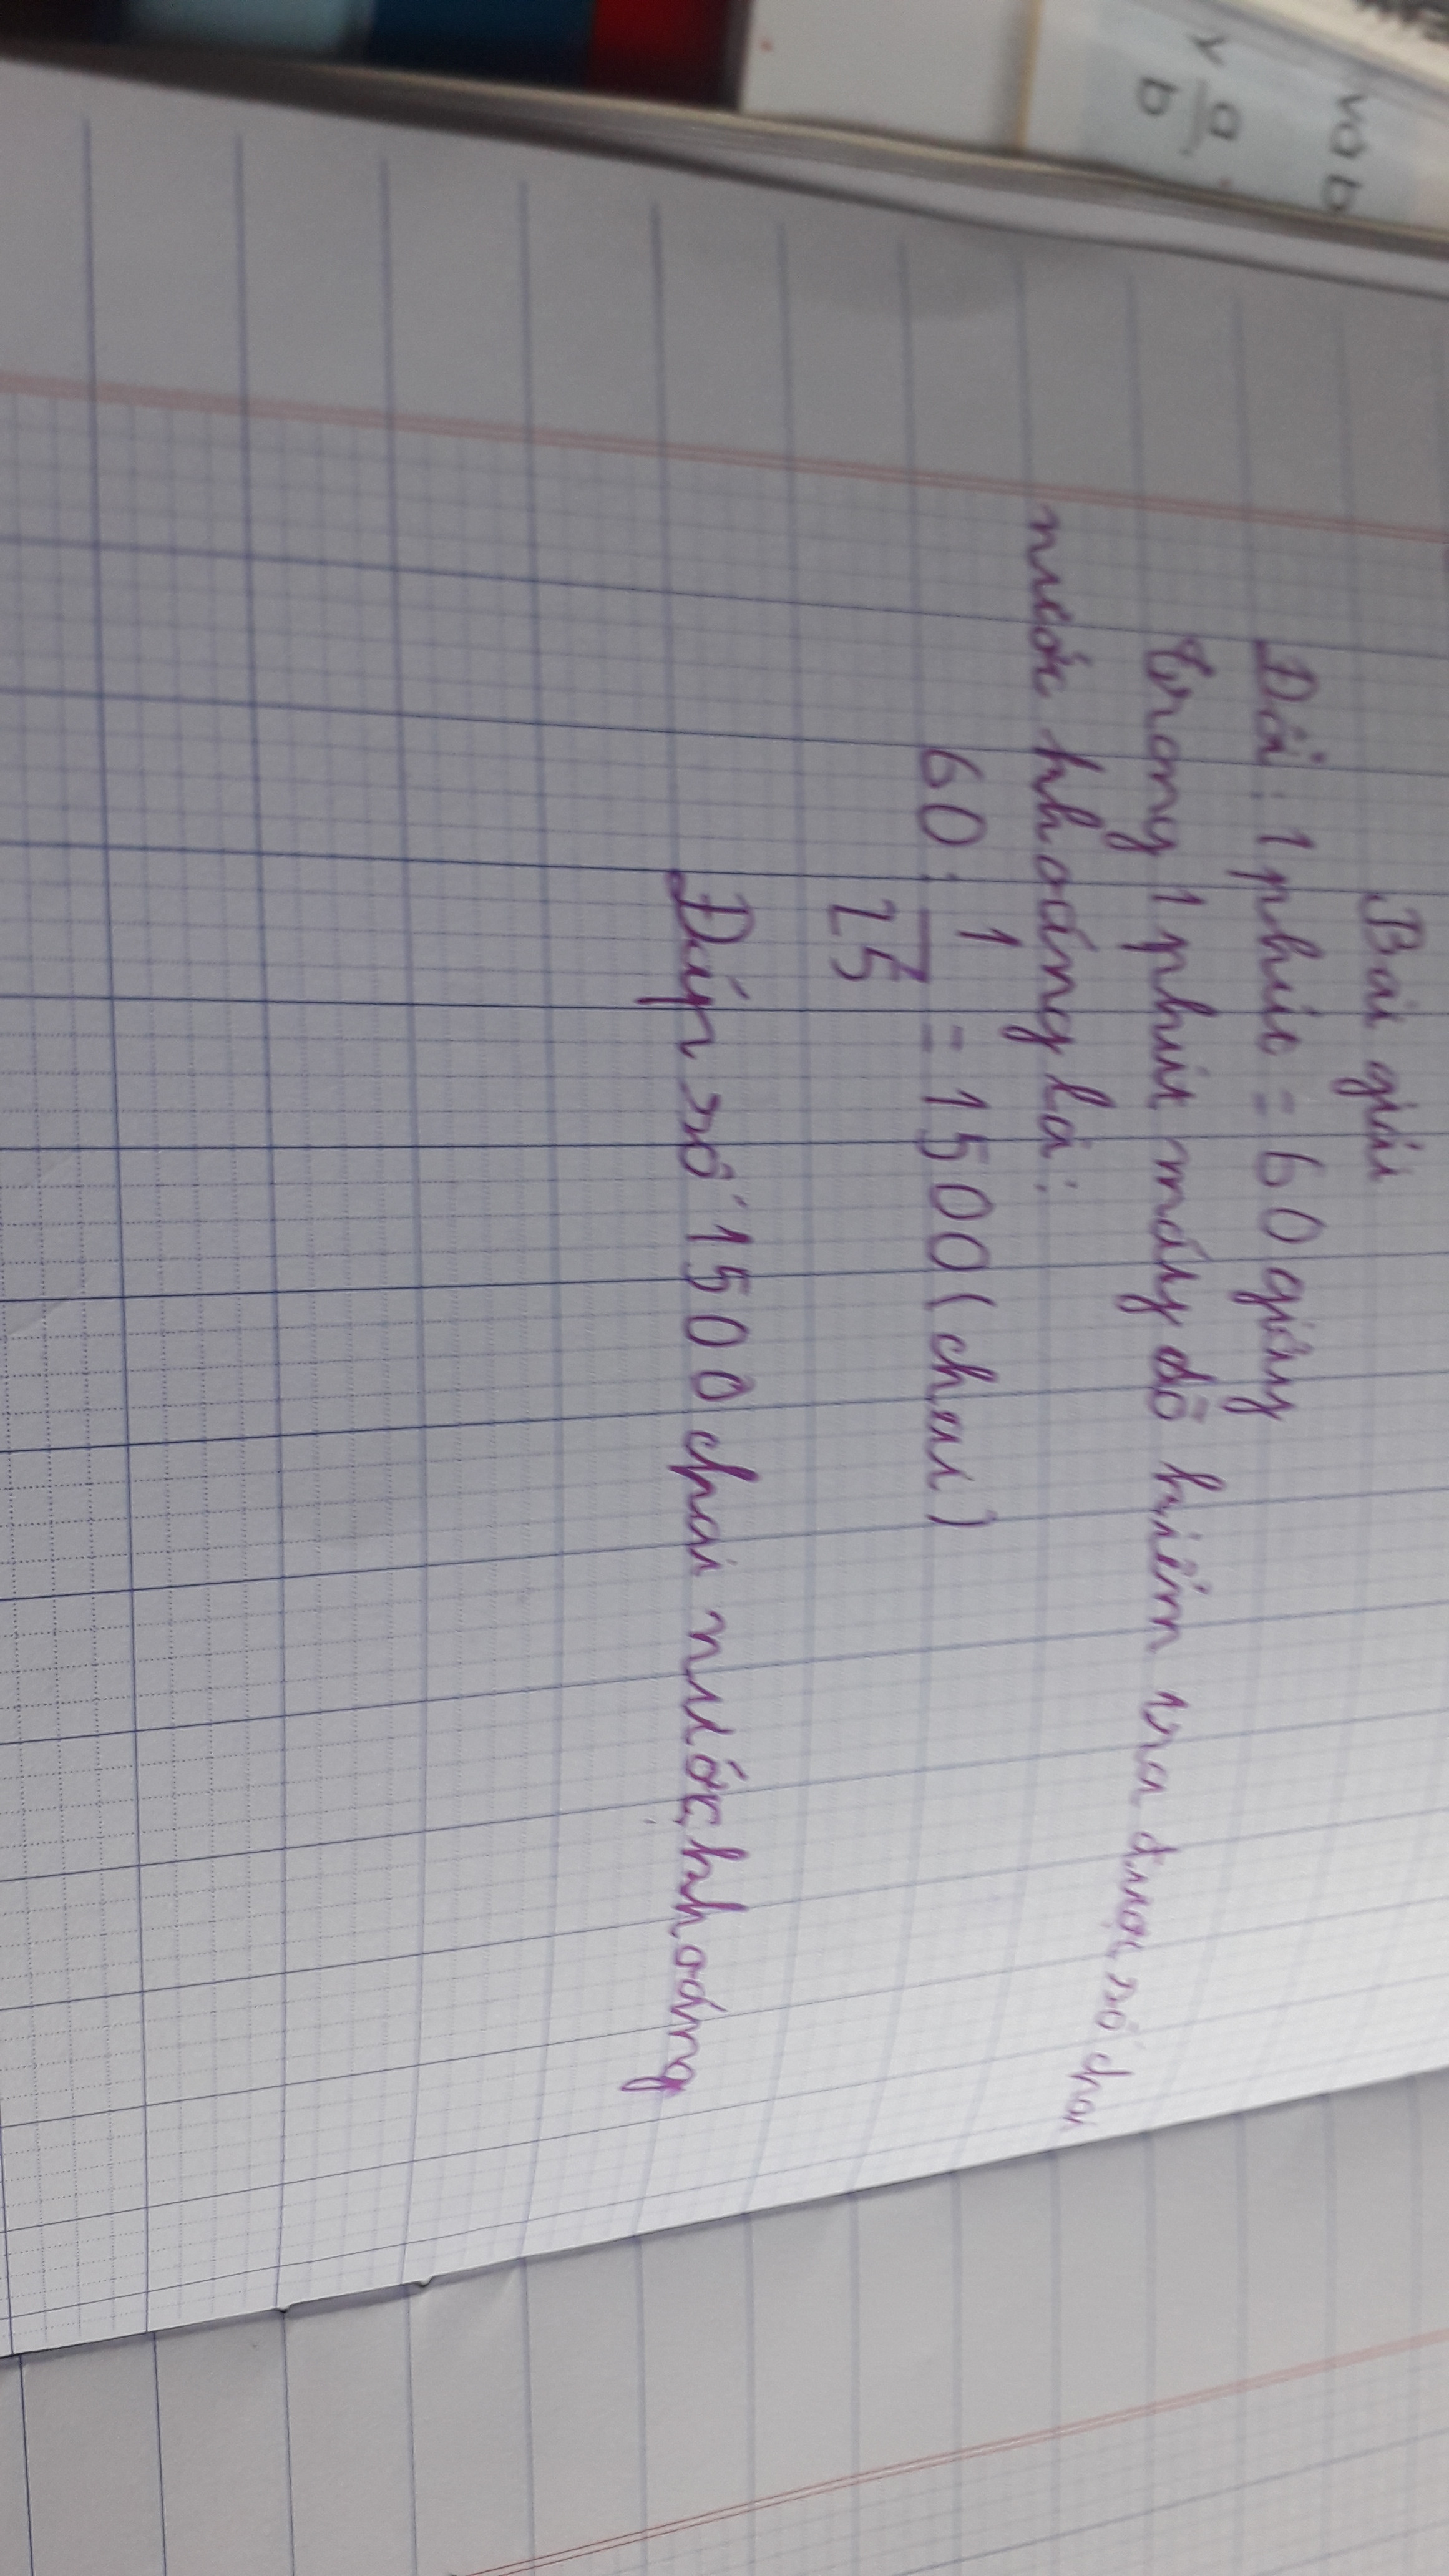 và b
a
b
Bài giải
Đổi: 1 phút = 60 giây
Trong 1 phút máy đó kiểm tra được số chai
nước khoáng là:
60 : 1/25 = 1500 ( chai )
Đáp số 1500 chai nước khoáng